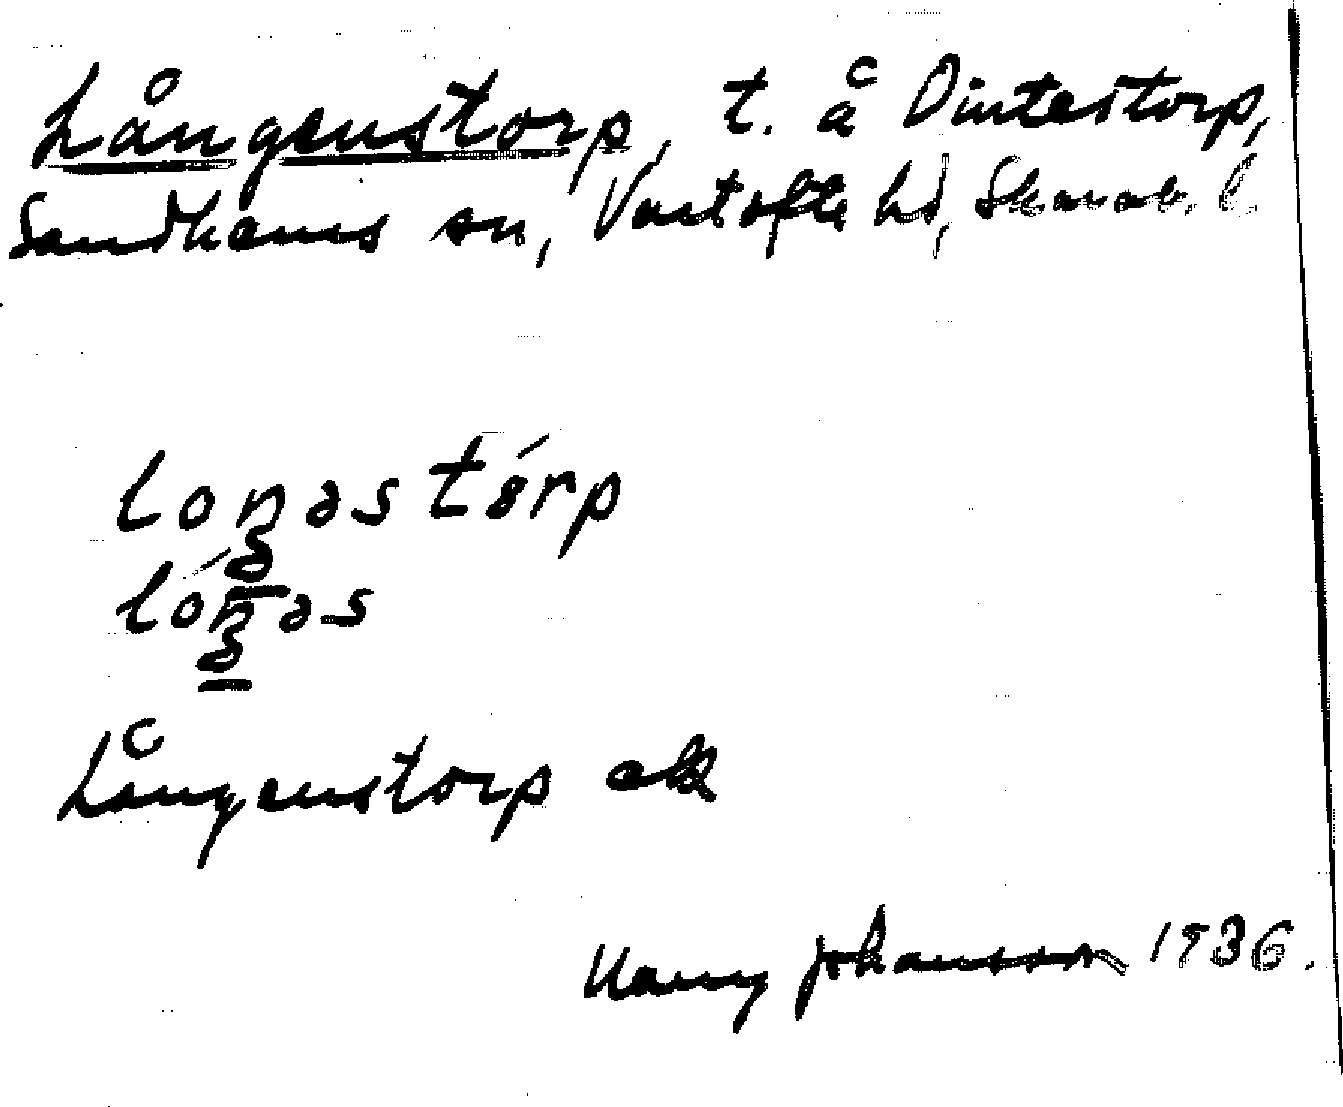 Långenstorp, t. å Dintestorp,
Sandhems sn, Vartofta hd, Skarab. l.
loŋəs tórp
lóŋəs
Långenstorp ek
Harry Johansson 1936.